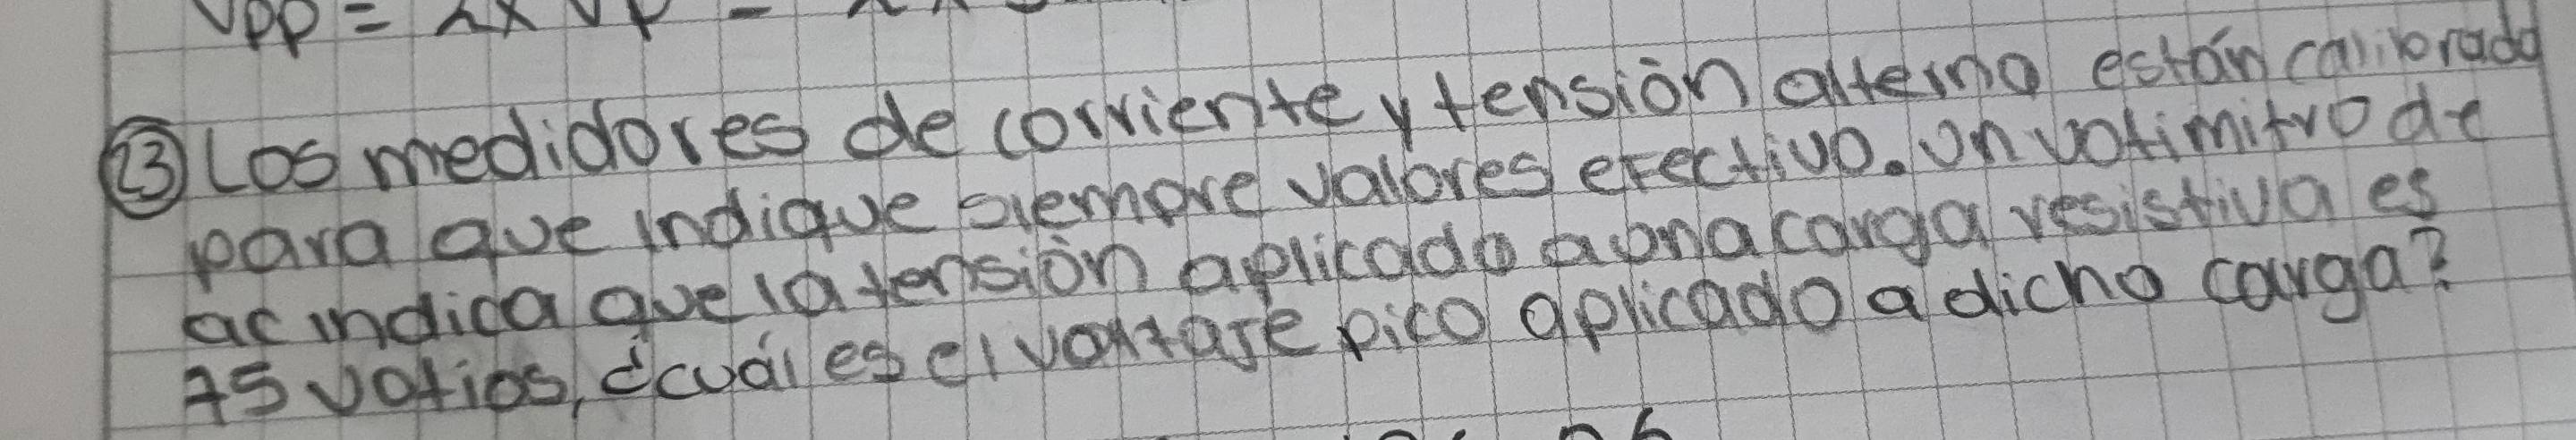 Vpp = 2x Vp = 2x
23 Los medidores de corriente y tensión alterna están calibrado
para que indique siempre valores efectivo. Un voltimitro de
ac indica que la tensión aplicado a una carga resistiva es
75 voltios, ¿cuál es el voltaje pico aplicado a dicho carga?